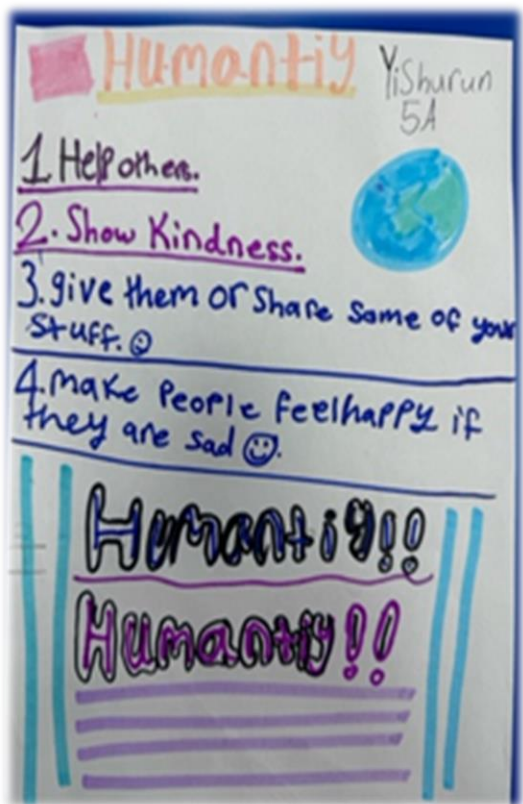 Humantiy
YiShurun
5A
1. Help others.
2. Show Kindness.
3. give them or share some of your
stuff.
4. make people feel happy if
they are sad
Humantiy!!
Humantiy!!